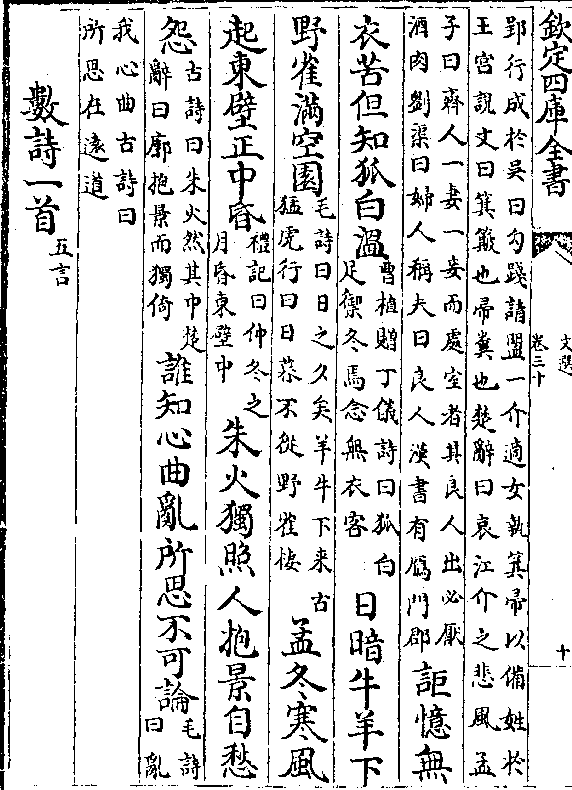 欽定四庫全書
文選
卷三十
十
郢行成於吳曰勾踐請盟一介適女執箕帚以備姓於
王宫説文曰箕簸也帚糞也楚辭曰哀江介之悲風孟
子曰齊人一妻一妾而處室者其良人出必厭
酒肉劉渠曰婦人稱夫曰良人漢書有鴈門郡
詎憶無
衣苦但知狐白温
曹植贈丁儀詩曰狐白
足禦冬焉念無衣客
日暗牛羊下
野雀滿空園
毛詩曰日之久矣羊牛下来古
猛虎行曰日暮不從野雀棲
孟冬寒風
起東壁正中昏
禮記曰仲冬之
月昏東壁中
朱火獨照人抱景自愁
怨
古詩曰朱火然其中楚
辭曰廓抱景而獨倚
誰知心曲亂所思不可論
毛詩
曰亂
我心曲古詩曰
所思在遠道
數詩一首
五言